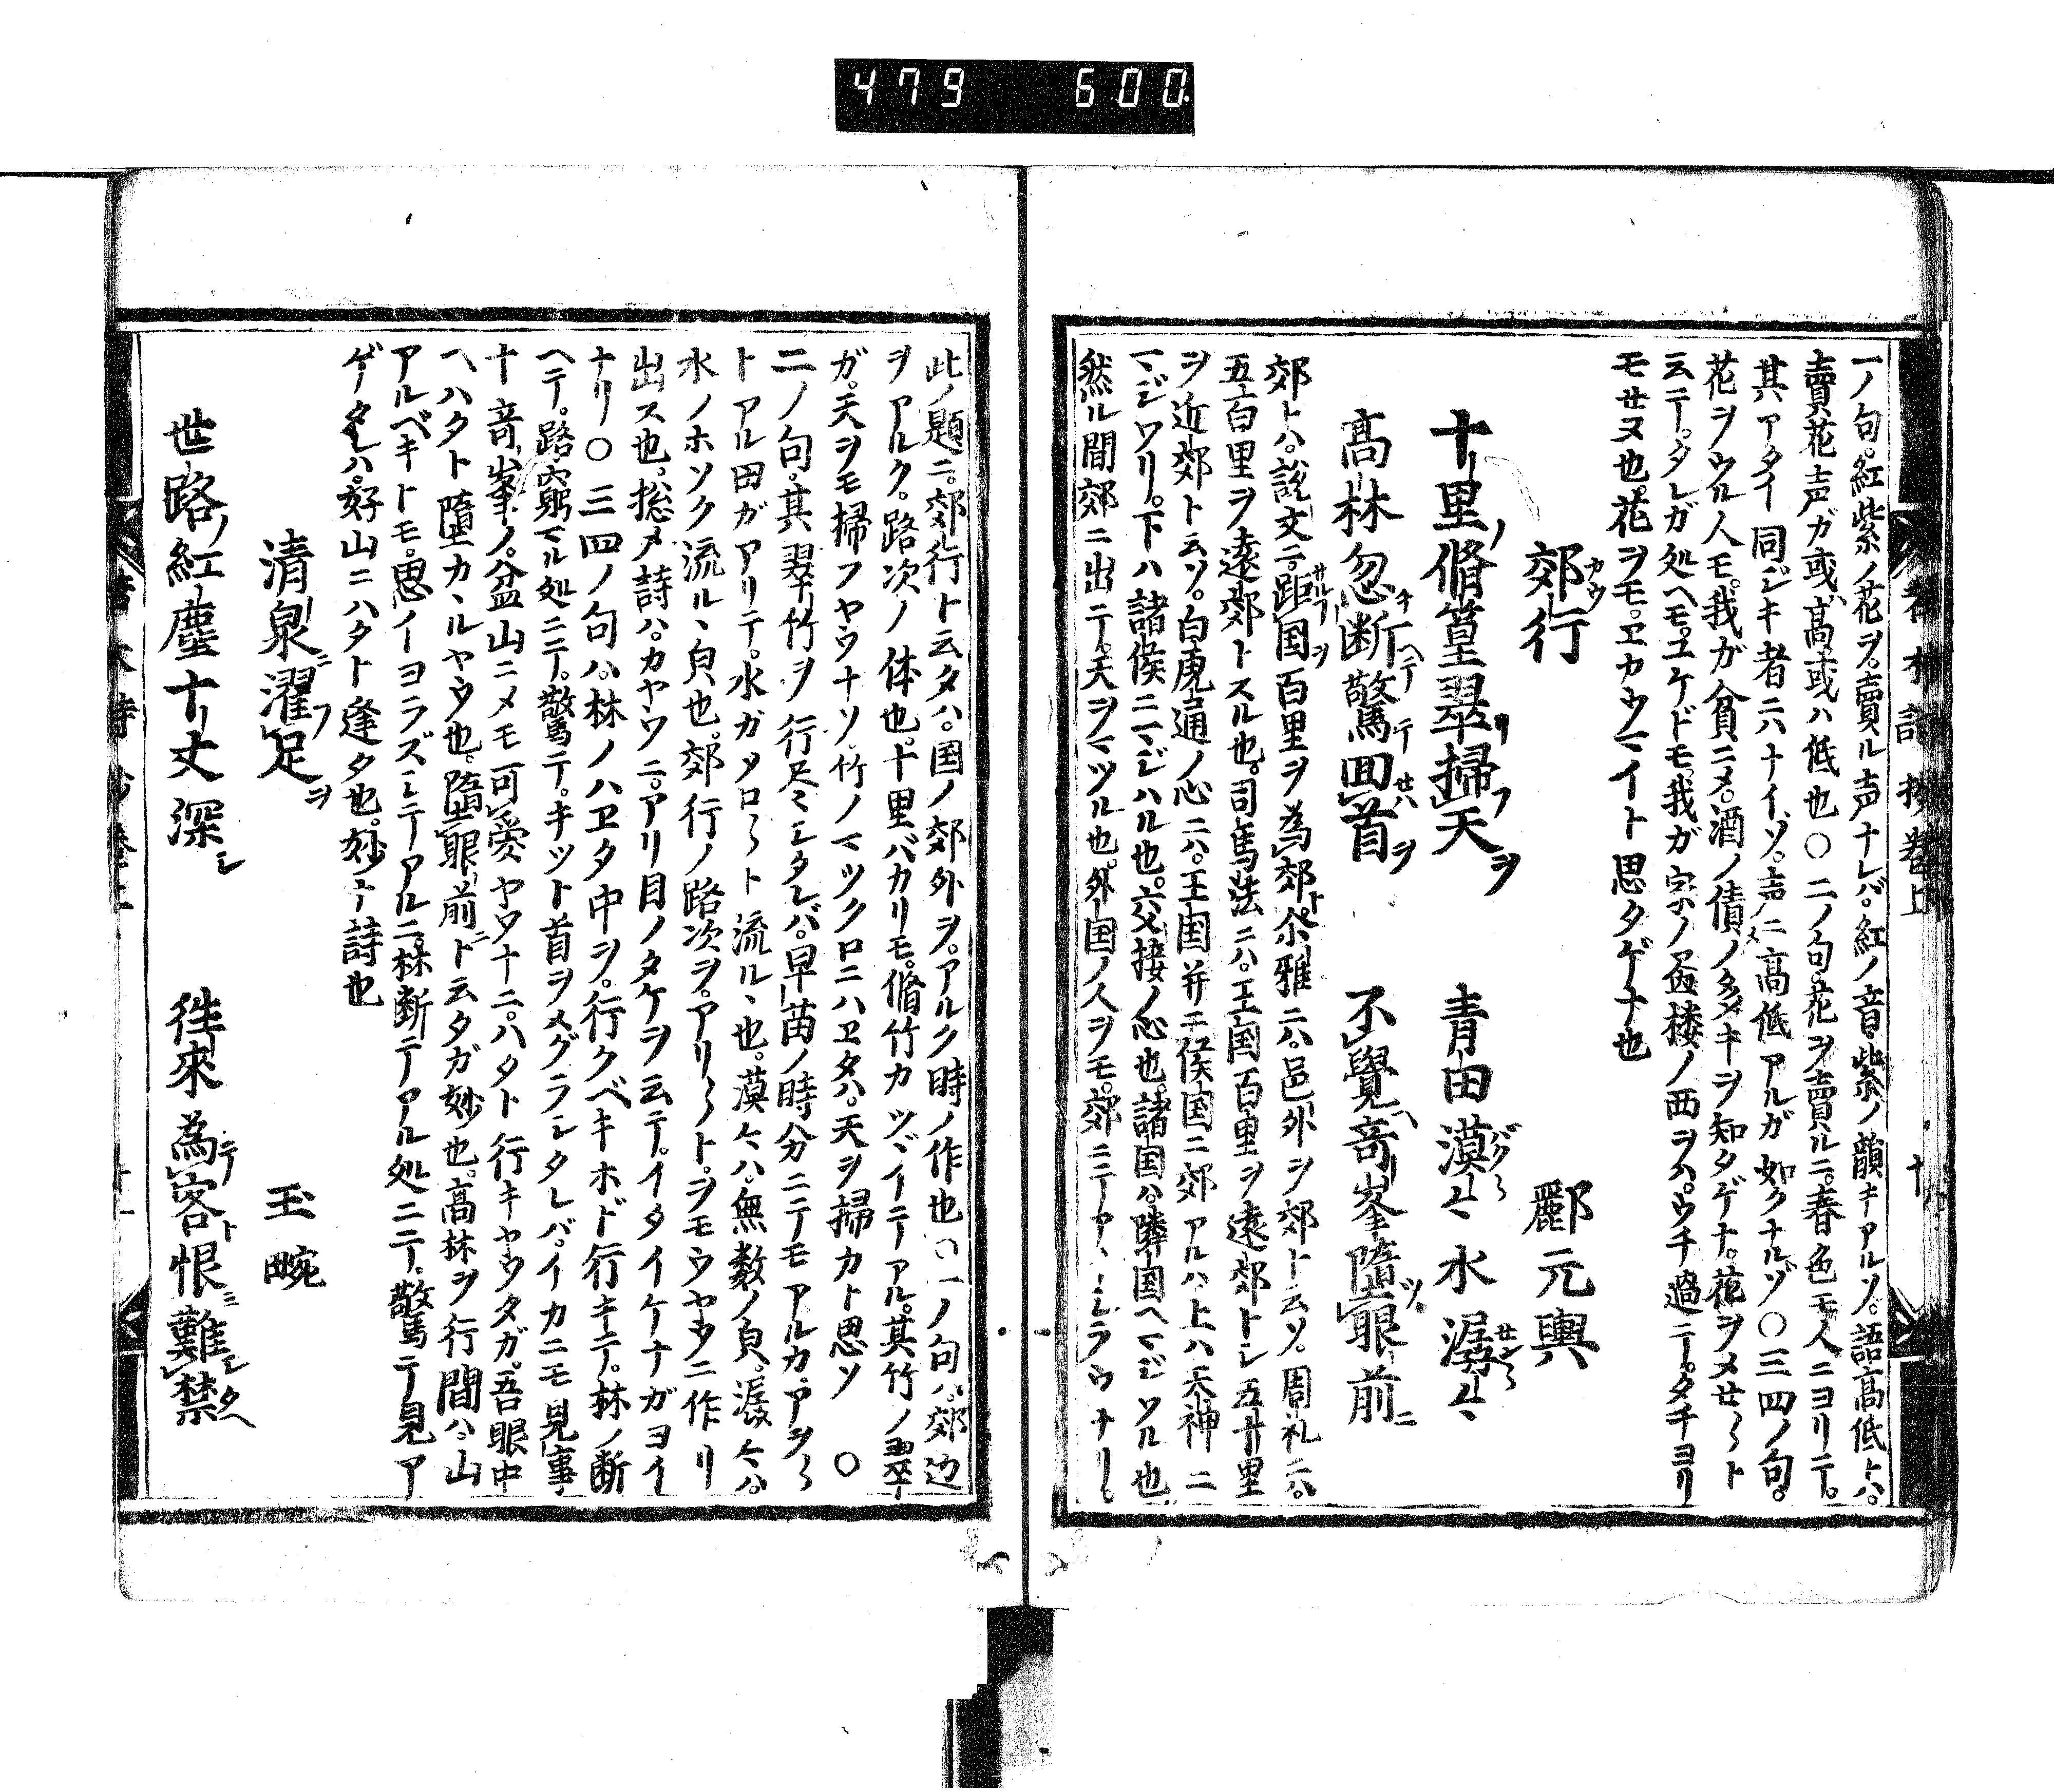 479 600
一ノ句。紅紫ノ花ヲ。賣ル声ナレバ。紅ノ音紫ノ韻キアルソ。語高低トハ。
賣花声ガ或ハ高或ハ低也〇二ノ句。花ヲ賣ルニ。春色モ人ニヨリテ。
其アタイ同ジキ者ニハナイゾ。声ニ高低アルガ如クナルゾ〇三四ノ句。
花ヲウル人モ。我ガ貧ニメ。酒ノ債ノ多キヲ知タゲナ。花ヲメせ〱ト
云テ。タレガ処ヘモ。ユケドモ。我ガ家ノ孟楼ノ西ヲハ。ウチ過テ。タチヨリ
モせヌ也。花ヲモ。エカウマイト思タゲナ也
郊行 酈元輿
十里ノ脩篁翠掃フ天ヲ 青田漠〻水潺〻
高林忽断ヘテ驚テ囬せハ首ヲ 不覺ヘ竒峯墮ツ眼前ニ
郊トハ。説文ニ。距国百里ヲ為郊ト。尒雅ニハ。邑外ヲ郊ト云ソ。周礼ニハ。
五百里ヲ遠郊トスル也。司馬法ニハ。王国百里ヲ遠郊トシ五十里
ヲ近郊ト云ソ。白虎通ノ心ニハ。王国并ニ侯国ニ郊アルハ、上ハ天神ニ
マジワリ。下ハ諸侯ニマジハル也。六父接ノ心也。諸国ハ。隣国ヘマジワル也
然ル間郊ニ出テ。天ヲマツル也。外国ノ人ヲモ。郊ニテ
此ノ題ニ。郊行ト云タハ。国ノ郊外ヲ。アルク時ノ作也〇一ノ句ハ。郊辺
ヲアルク。路次ノ体也。十里バカリモ。脩竹カツヾイテアル。其竹ノ翠
ガ。天ヲモ掃フヤウナソ。竹ノマツクロニハヱタハ。天ヲ掃カト思ソ 〇
二ノ句。其翠竹ヲ行尽シタレバ。早苗ノ時分ニテモアルカ。アヲ〱
トアル田ガアリテ。水ガタロ〱ト流ル丶也。漠々ハ。無数ノ皃。潺々ハ。
水ノホソク流ル丶皃也。郊行ノ路次ヲ。アリ〱ト。ヲモウヤウニ作リ
出ス也。捴メ詩ハ。カヤウニ。アリ目ノタケヲ云テ。イタイケナガヨイ
ナリ〇三四ノ句ハ。林ノハヱタ中ヲ。行クベキホド行キテ。林ノ断
ヘテ。路窮マル処ニテ。驚テ。キツト首ヲメグラシタレバ。イカニモ見事
十竒峯ノ。盆山ニメモ可愛ヤウナニ。ハタト行キヤウタガ。吾眼中
ヘハタト墮カ丶ルヤウ也。墮眼前ニト云タガ妙也。高林ヲ行間ハ、山
アルベキトモ。思イヨラズシテアルニ林断テアル処ニテ。驚テ見ア
ゲタレハ。好山ニハタト逢タ也。妙ナ詩也
清泉ニ濯フ足ヲ 玉畹
世路ノ紅塵十丈深シ 徃來為テ客ト恨難シ禁タヘ